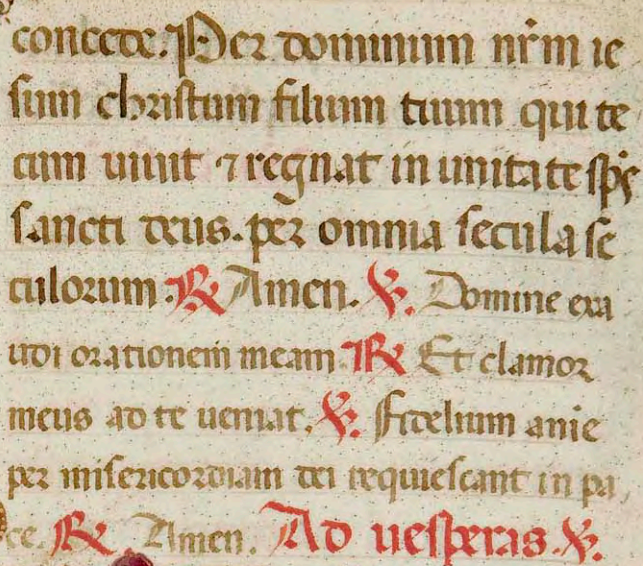 concede. Per dominum nr̄m ie
sum christum filium tuum qui te
cum uiuit ⁊ regnat in unitate sp̄s
sancti deus. per omnia secula se
culorum. ℟ Amen. ℣. Domine exa
udi orationem meam. ℟ Et clamor
meus ad te ueniat. ℣. Fidelium anie
per misericordiam dei requiescant in pa
ce. ℟. Amen. Ad uesperas. ℣.